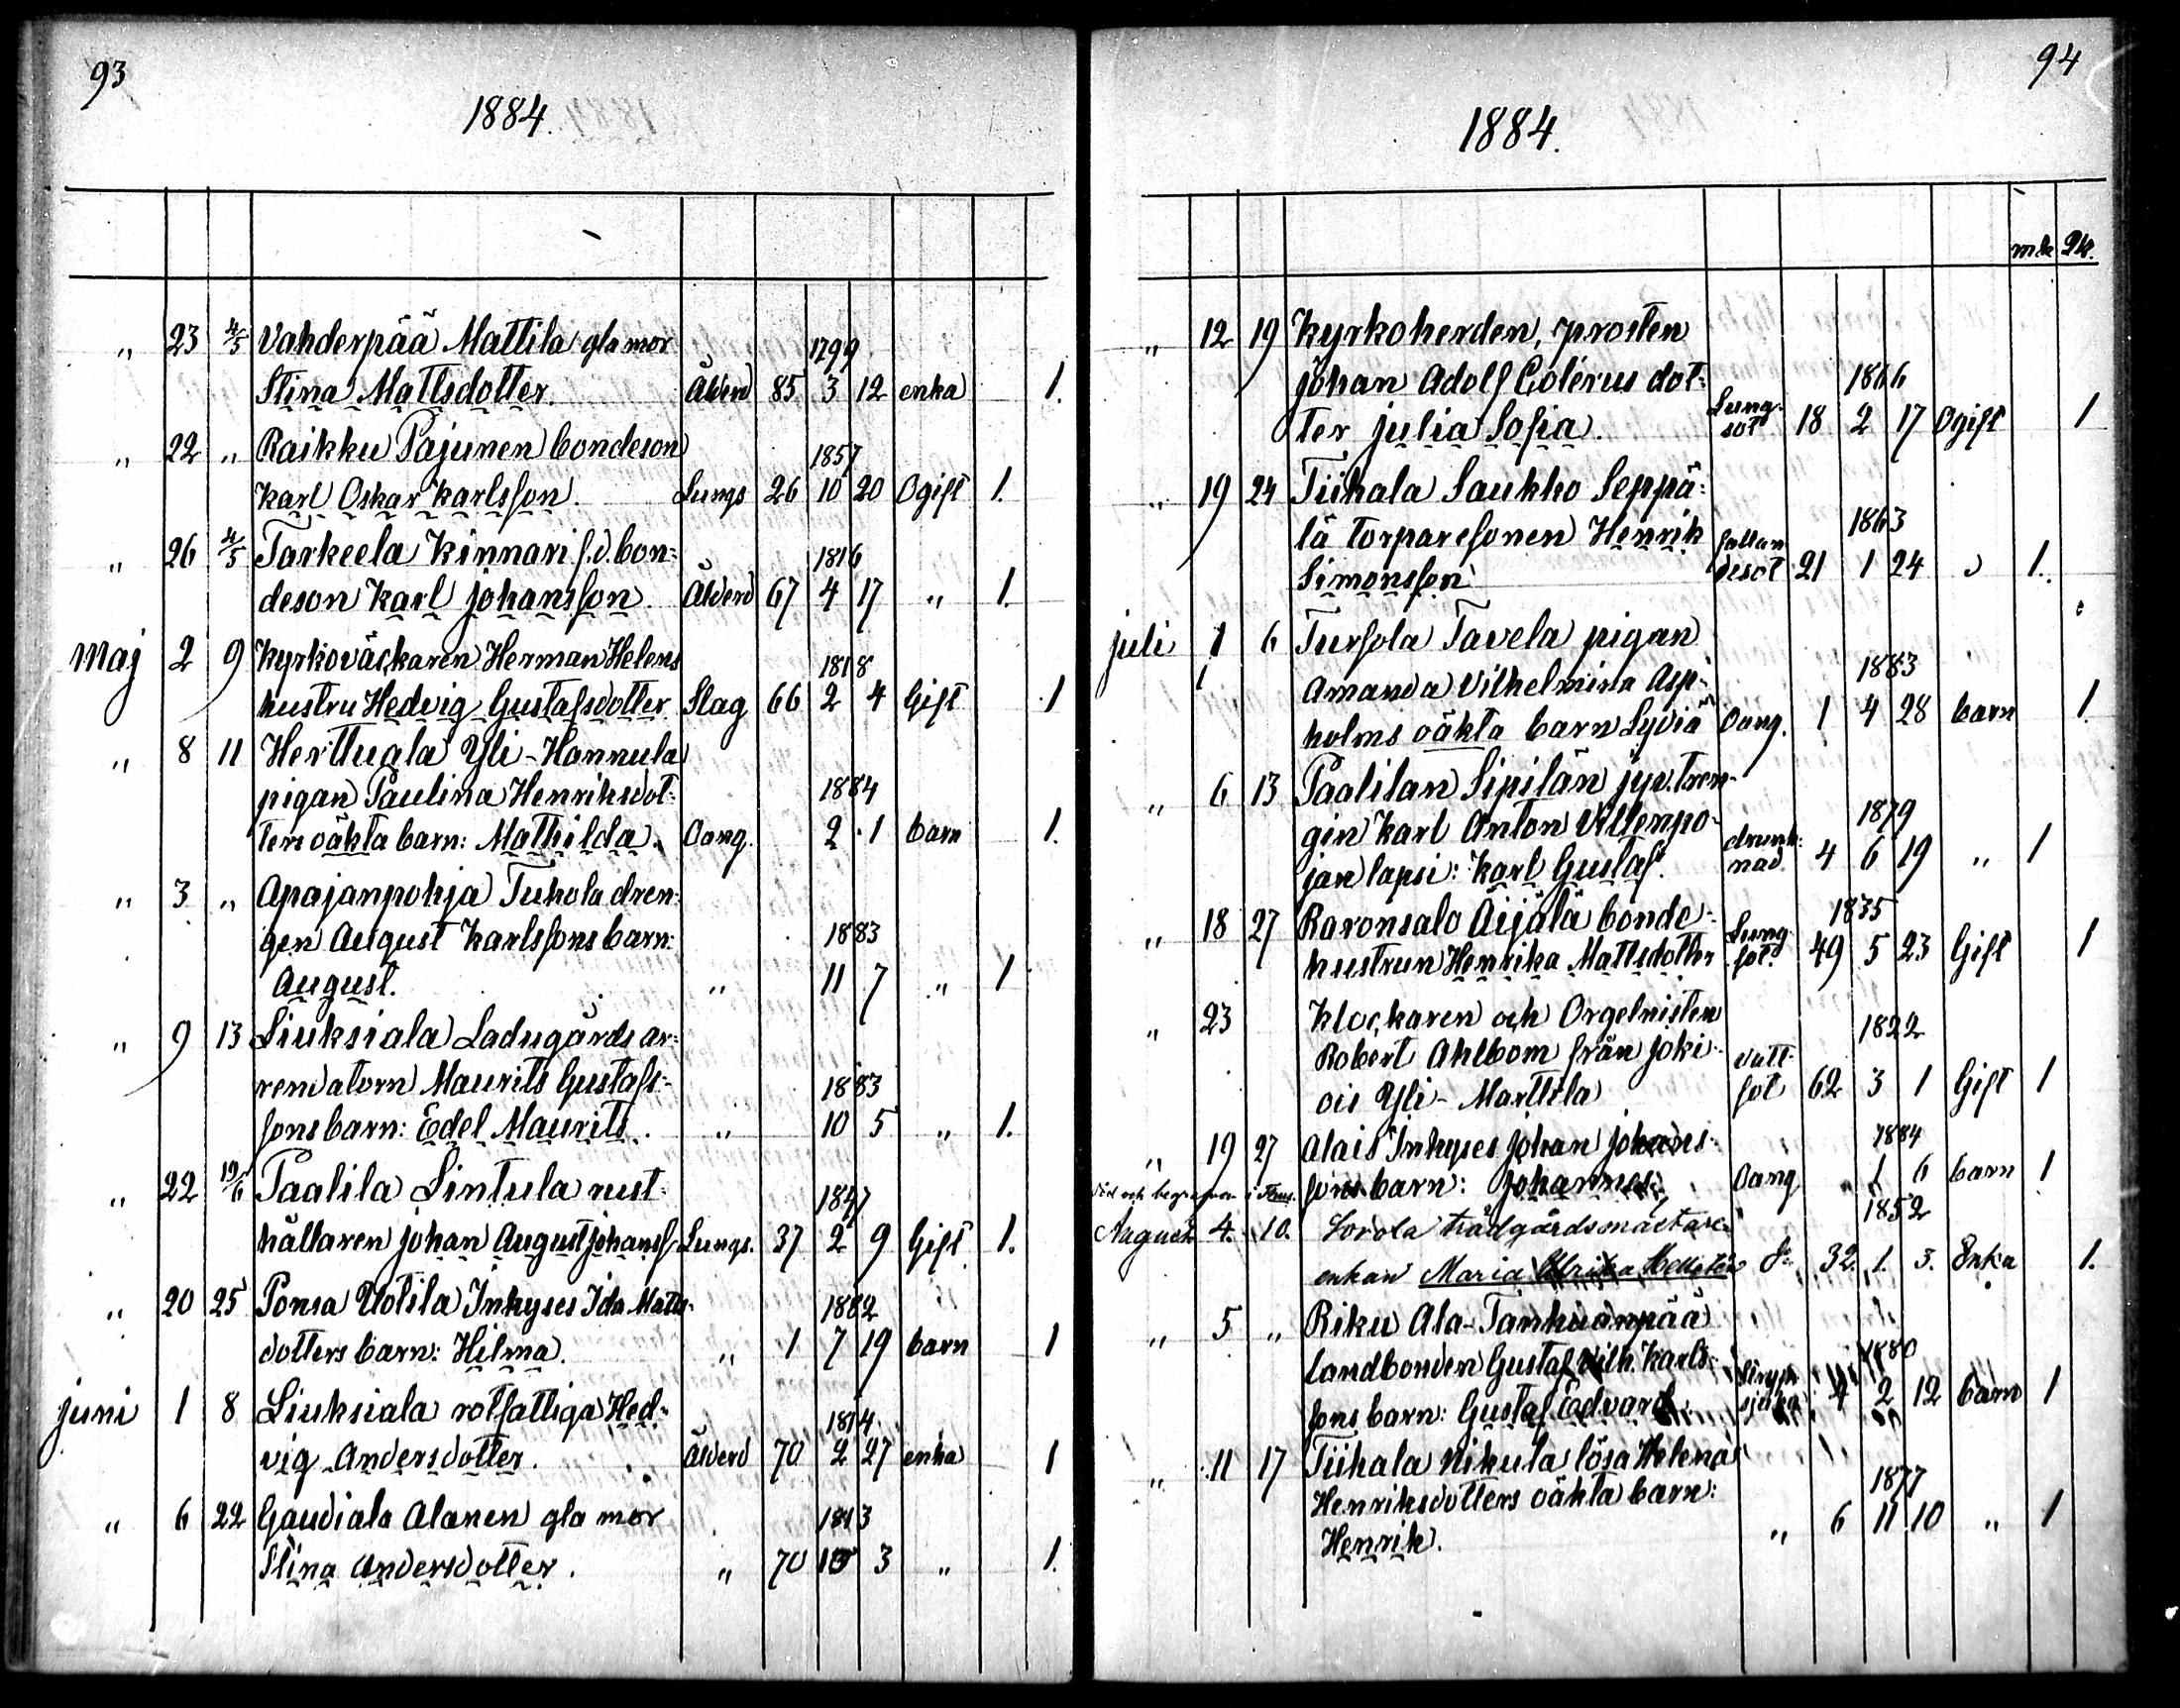 93
1884.
„ 23 4/5 Vahderpää Mattila gla mor 1799
Stina Mattsdotter. Ålderd 85 3 12 enka 1.
„ 22 „ Raikku Pajunen bondeson 1857
Karl Oskar Karlsson. Lungs 26 10 20 Ogift 1.
„ 26 4/5 Tarkeela Kinnari f.d. bon- 1816
deson Karl Johansson. Ålderd 67 4 17 „ 1.
Maj 2 9 Kyrkoväckaren Herman Helens 1818
hustru Hedvig Gustafsdotter Slag 66 2 4 Gift 1
„ 8 11 Herttuala Yli-Hannula
pigan Paulina Henriksdot- 1884
ters oäkta barn: Mathilda. Oang. 2 1 barn 1.
„ 3 „ Apajanpohja Tukola dren-
gen August Karlssons barn: 1883
August. „ 11 7 „ 1
„ 9 13 Liuksiala Ladugårds ar-
rendatorn Maurits Gustafs- 1883
sons barn: Edel Maurits. „ 10 5 „ 1.
„ 22 19/6 Paalila Lintula rust- 1847
hållaren Johan August Johanss. Lungs. 37 2 9 Gift 1.
„ 20 25 Ponsa Uotila Inhyses Ida Matts- 1882
dotters barn: Hilma. „ 1 7 19 barn 1
Juni 1 8 Liuksiala rotfattiga Hed- 1814
vig Andersdotter. Ålderd 70 2 27 enka 1
„ 6 22 Gaudiala Alanen gla mor 1813
Stina Andersdotter. „ 70 10 3 „ 1.
94
1884.
mk Qk.
„ 12 19 Kyrkoherden, prosten
Johan Adolf Colérus dot- 1866
ter Julia Sofia. Lung-sot 18 2 17 Ogift 1
„ 19 24 Tiihala Saukko Seppä-
lä torparesonen Henrik 1863
Simonsson fallandesot 21 1 24 „ 1.
Juli 1 6 Tursola Tavela pigan
Amanda Vilhelmina Asp- 1883
holms oäkta barn Lydia Oang. 1 4 28 barn 1.
„ 6 13 Paalilan Sipilän jyv. tren-
gin Karl Anton Villenpo- 1879
jan lapsi: Karl Gustaf. drunk-nad 4 6 19 „ 1
„ 18 27 Raronsalo Äijälä bonde- 1835
hustrun Henrika Mattsdotter Lung-sot. 49 5 23 Gift 1
„ 23 Klockaren och Orgelnisten 1822
Robert Ahlbom från Joki-
ois Yli-Marttila Vatt-sot 62 3 1 Gift 1
„ 19 27 Alais Inhyses Johan Johans- 1884
sons barn: Johannes. Oang „ 1 6 barn 1
Död och begrafven i
Augusti 4. 10. Sorola trädgårdsmästare 1852
enkan Maria Ulrika Hellstén 32. 1. 3. Enka 1.
„ 5 „ Riku Ala-Tanhuanpää
landbonden Gustaf Vilh. Karls- 1880
sons barn: Gustaf Edvard. 4 2 12 barn 1
„ 11 17 Tiihala Nikula lösa Helena
Henriksdotters oäkta barn: 1877
Henrik. „ 6 11 10 „ 1